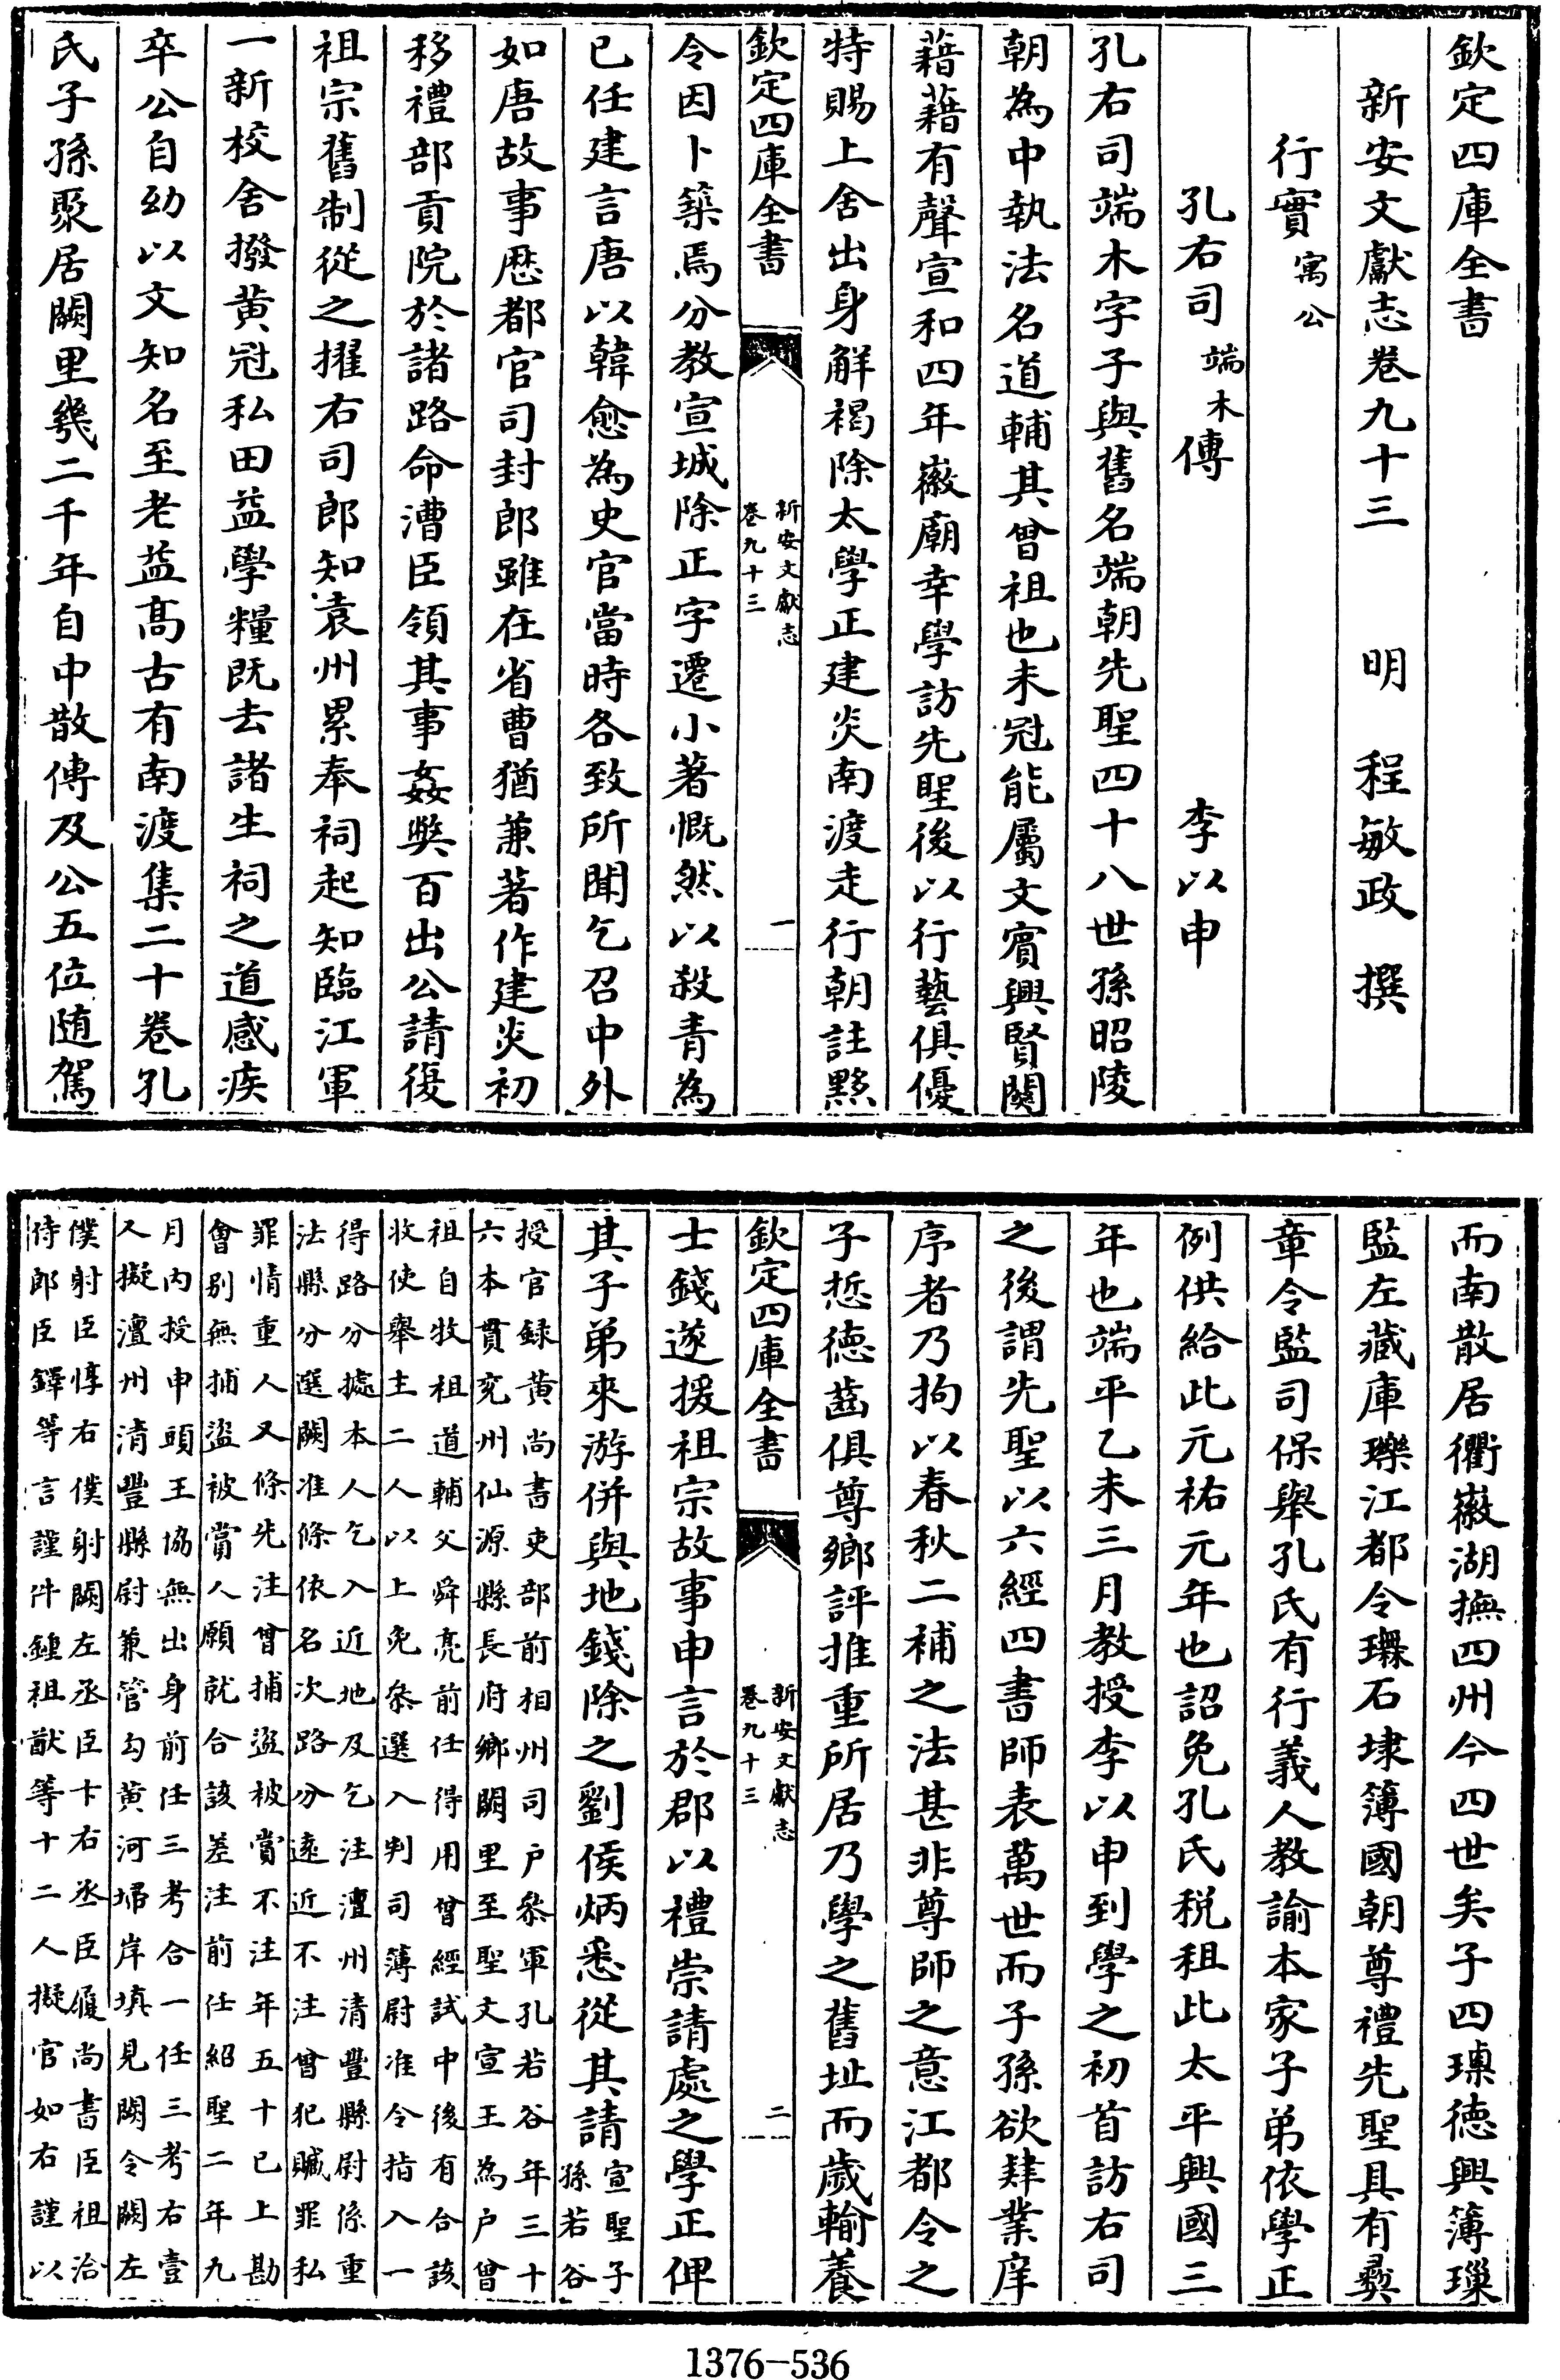 欽定四庫全書
新安文獻志卷九十三　明　程敏政　撰
行實寓公
孔右司端木傳　李以申
孔右司端木字子與舊名端朝先聖四十八世孫昭陵
朝為中執法名道輔其曾祖也未冠能屬文賓興賢關
藉藉有聲宣和四年徽廟幸學訪先聖後以行藝俱優
特賜上舍出身解褐除太學正建炎南渡走行朝註黟
欽定四庫全書
新安文獻志
卷九十三
一
令因卜築焉分教宣城除正字遷小著慨然以殺青為
已任建言唐以韓愈為史官當時各致所聞乞召中外
如唐故事歴都官司封郎雖在省曹猶兼著作建炎初
移禮部貢院於諸路命漕臣領其事姦獘百出公請復
祖宗舊制從之擢右司郎知袁州累奉祠起知臨江軍
一新校舍撥黄冠私田益學糧既去諸生祠之道感疾
卒公自幼以文知名至老益髙古有南渡集二十卷孔
氏子孫聚居闕里幾二千年自中散傅及公五位随駕
而南散居衢徽湖撫四州今四世矣子四㻛徳興簿璅
監左藏庫瓅江都令㻽石埭簿國朝尊禮先聖具有彞
章令監司保舉孔氏有行義人教諭本家子弟依學正
例供給此元祐元年也詔免孔氏税租此太平興國三
年也端平乙未三月教授李以申到學之初首訪右司
之後謂先聖以六經四書師表萬世而子孫欲肄業庠
序者乃拘以春秋二補之法甚非尊師之意江都令之
子悊徳齒俱尊鄉評推重所居乃學之舊址而歲輸養
欽定四庫全書
新安文獻志
卷九十三
二
士錢遂援祖宗故事申言於郡以禮崇請處之學正俾
其子弟來游併與地錢除之劉侯炳悉從其請宣聖子
孫若谷
授官録黄尚書吏部前相州司戸叅軍孔若谷年三十
六本貫兖州仙源縣長府鄉闕里至聖文宣王為戸曾
祖自牧祖道輔父舜亮前任得用曾經試中後有合該
收使舉主二人以上免叅選入判司薄尉准令指入一
得路分據本人乞入近地及乞注澶州清豐縣尉係重
法縣分選闕准條依名次路分遠近不注曾犯贓罪私
罪情重人又條先注曾捕盗被賞不注年五十已上勘
會别無捕盗被賞人願就合該差注前任紹聖二年九
月内授申頭王協無出身前任三考合一任三考右壹
人擬澶州清豐縣尉兼管勾黄河埽岸填見闕令闕左
僕射臣惇右僕射闕左丞臣卞右丞臣履尚書臣祖洽
侍郎臣鐸等言謹件鍾祖猷等十二人擬官如右謹以
1376-536